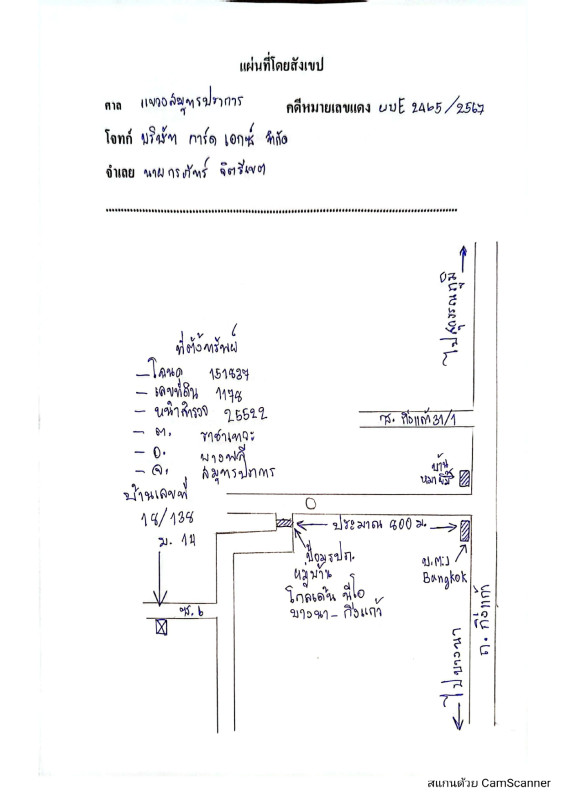 แผนที่โดยสังเขป
ศาล แขวงสมุทรปราการ คดีหมายเลขแดง ผบE 2465/2567
โจทก์ บริษัท การ์ด เอกซ์ จำกัด
จำเลย
ไปสุวรรณภูมิ
ที่ตั้งทรัพย์
- โฉนด 151837
- เลขที่ดิน 1178
- หน้าสำรวจ 25522
- ต. ราชาเทวะ
- อ. บางพลี
- จ. สมุทรปราการ
บ้านเลขที่
18/138
ม. 14
ซ. กิ่งแก้ว 31/1
บ้าน
ประมาณ 800 ม.
ป้อมรปภ.
หมู่บ้าน
โกลเด้น นีโอ
บางนา - กิ่งแก้ว
Bangkok
ซ. 6
ถ. กิ่งแก้ว
ไปบางนา
สแกนด้วย CamScanner